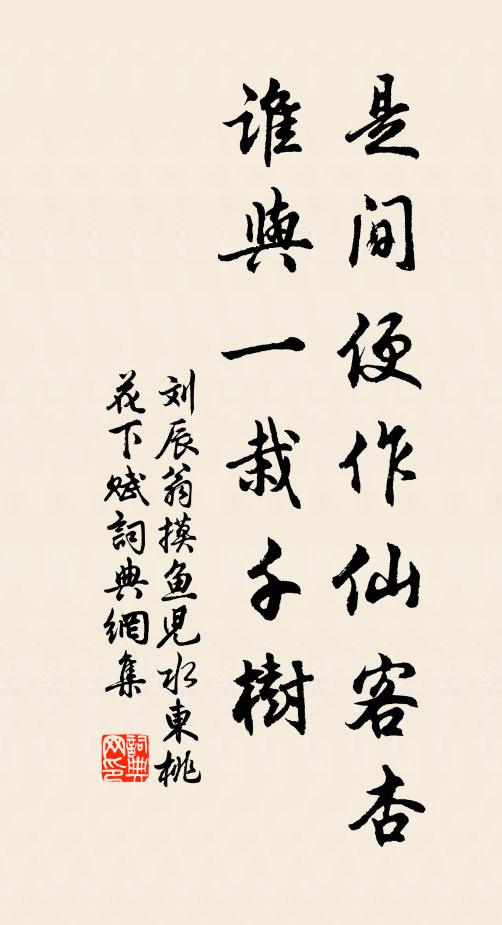 是间便作仙客杏
谁與一栽千樹
刘辰翁摸鱼児水東桃
花下赋詞典網集
詞典網印